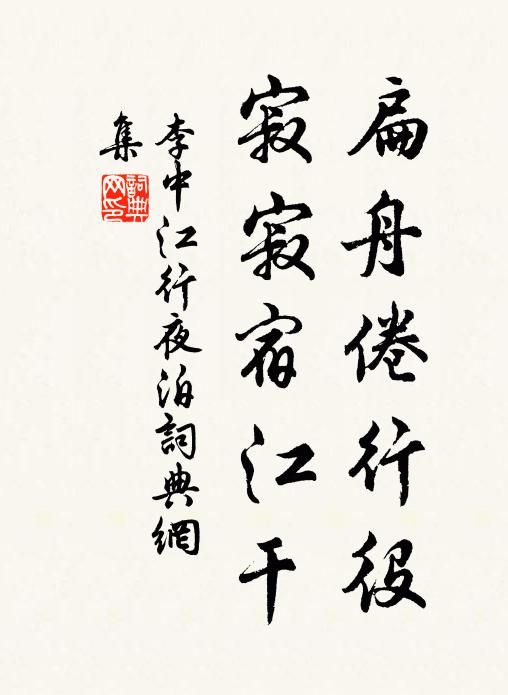 扁舟倦行役
寂寂宿江干
李中江行夜泊詞典網
集
詞典
网印